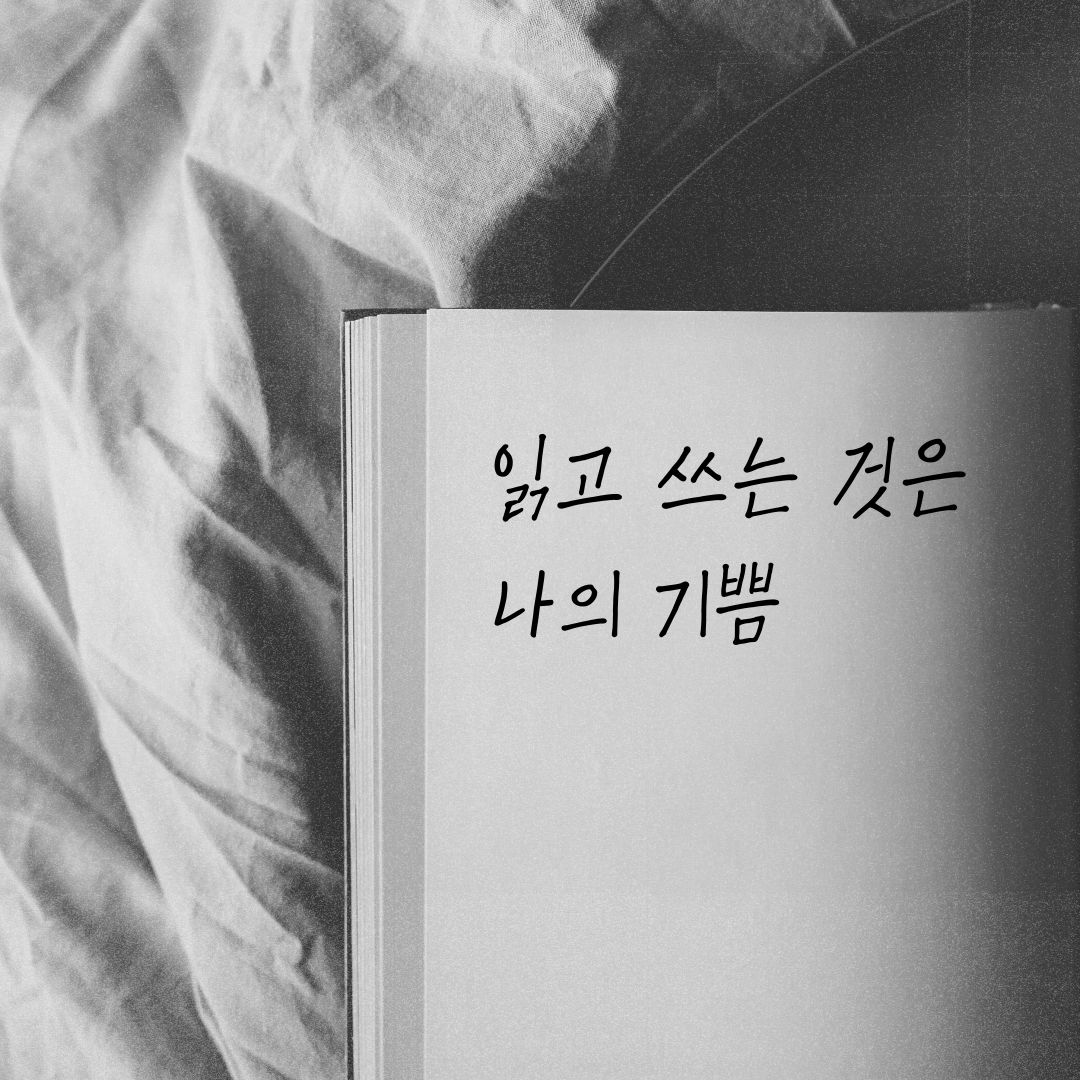 읽고 쓰는 것은
나의 기쁨